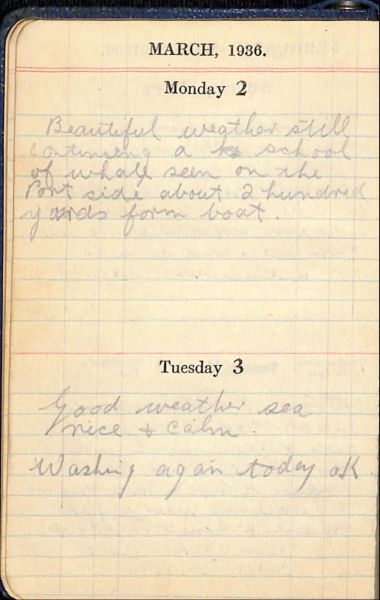 MARCH, 1936.
Monday 2
Beautiful weather still
continuing a school
of whale seen on the
Port side about 2 hundred
yards form boat.
Tuesday 3
Good weather sea
nice + calm.
Washing again today ok.